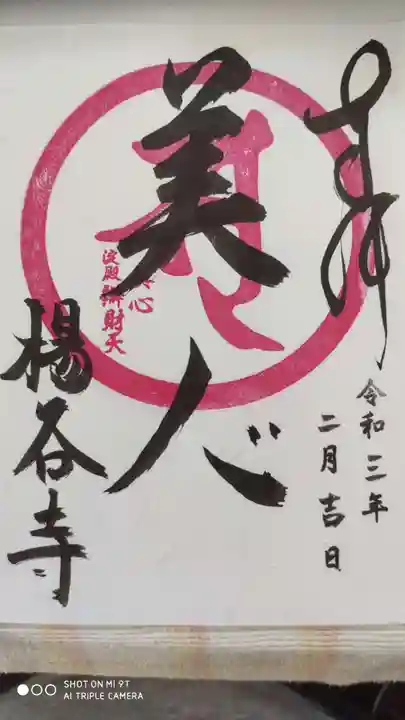 奉拝
令和三年
二月吉日
美人
心
淀殿辨財天
楊谷寺
SHOT ON MI 9T
AI TRIPLE CAMERA